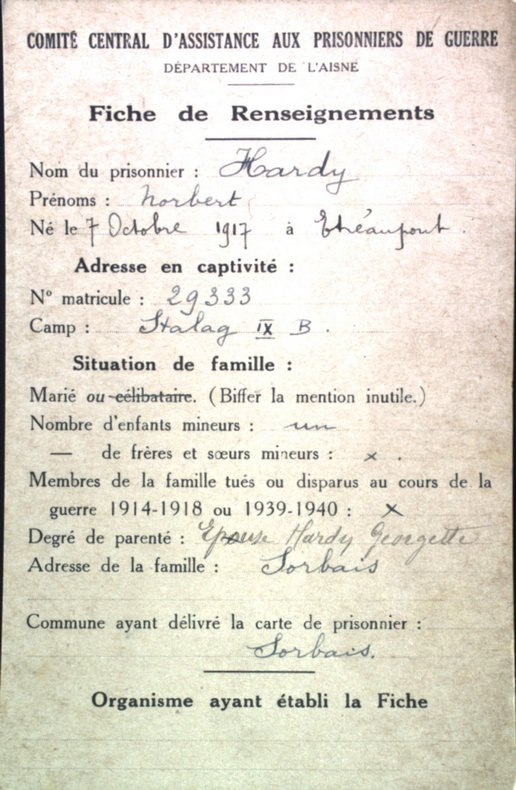 COMITÉ CENTRAL D'ASSISTANCE AUX PRISONNIERS DE GUERRE
DÉPARTEMENT DE L'AISNE
Fiche de Renseignements
Nom du prisonnier : Hardy
Prénoms : Norbert
Né le 7 Octobre 1917 à Etréaupont.
Adresse en captivité :
N° matricule : 29333
Camp : Stalag IX B.
Situation de famille :
Marié ou célibataire. (Biffer la mention inutile.)
Nombre d'enfants mineurs : un
— de frères et sœurs mineurs : x.
Membres de la famille tués ou disparus au cours de la
guerre 1914-1918 ou 1939-1940 : x
Degré de parenté : Epouse Hardy Georgette
Adresse de la famille : Sorbais
Commune ayant délivré la carte de prisonnier :
Sorbais.
Organisme ayant établi la Fiche